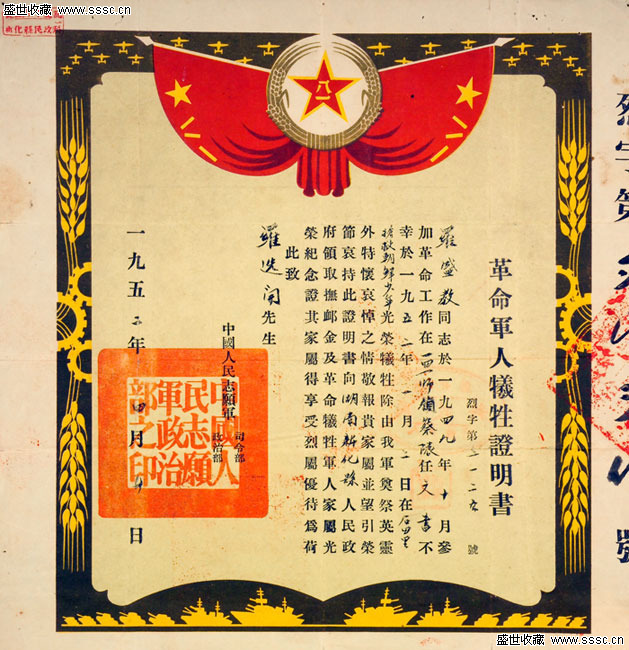 盛世收藏 www.sssc.cn
八一
革命軍人犧牲證明書
烈字第 一二九號
羅盛教同志於一九四九年十月參
加革命工作在 師偵察隊任文書不
幸於一九五二年一月二日在石田里
搶救朝鮮少年光榮犧牲除由我軍奠祭英靈
外特懷哀悼之情敬報貴家屬並望引榮
節哀持此證明書向湖南新化縣人民政
府領取撫卹金及革命犧牲軍人家屬光
榮紀念證其家屬得享受烈屬優待爲荷
此致
羅迭開先生
中國人民志願軍
司令部
政治部
一九五二年四月 日
中國人民志願軍政治部之印
烈字第 號
盛世收藏 www.sssc.cn